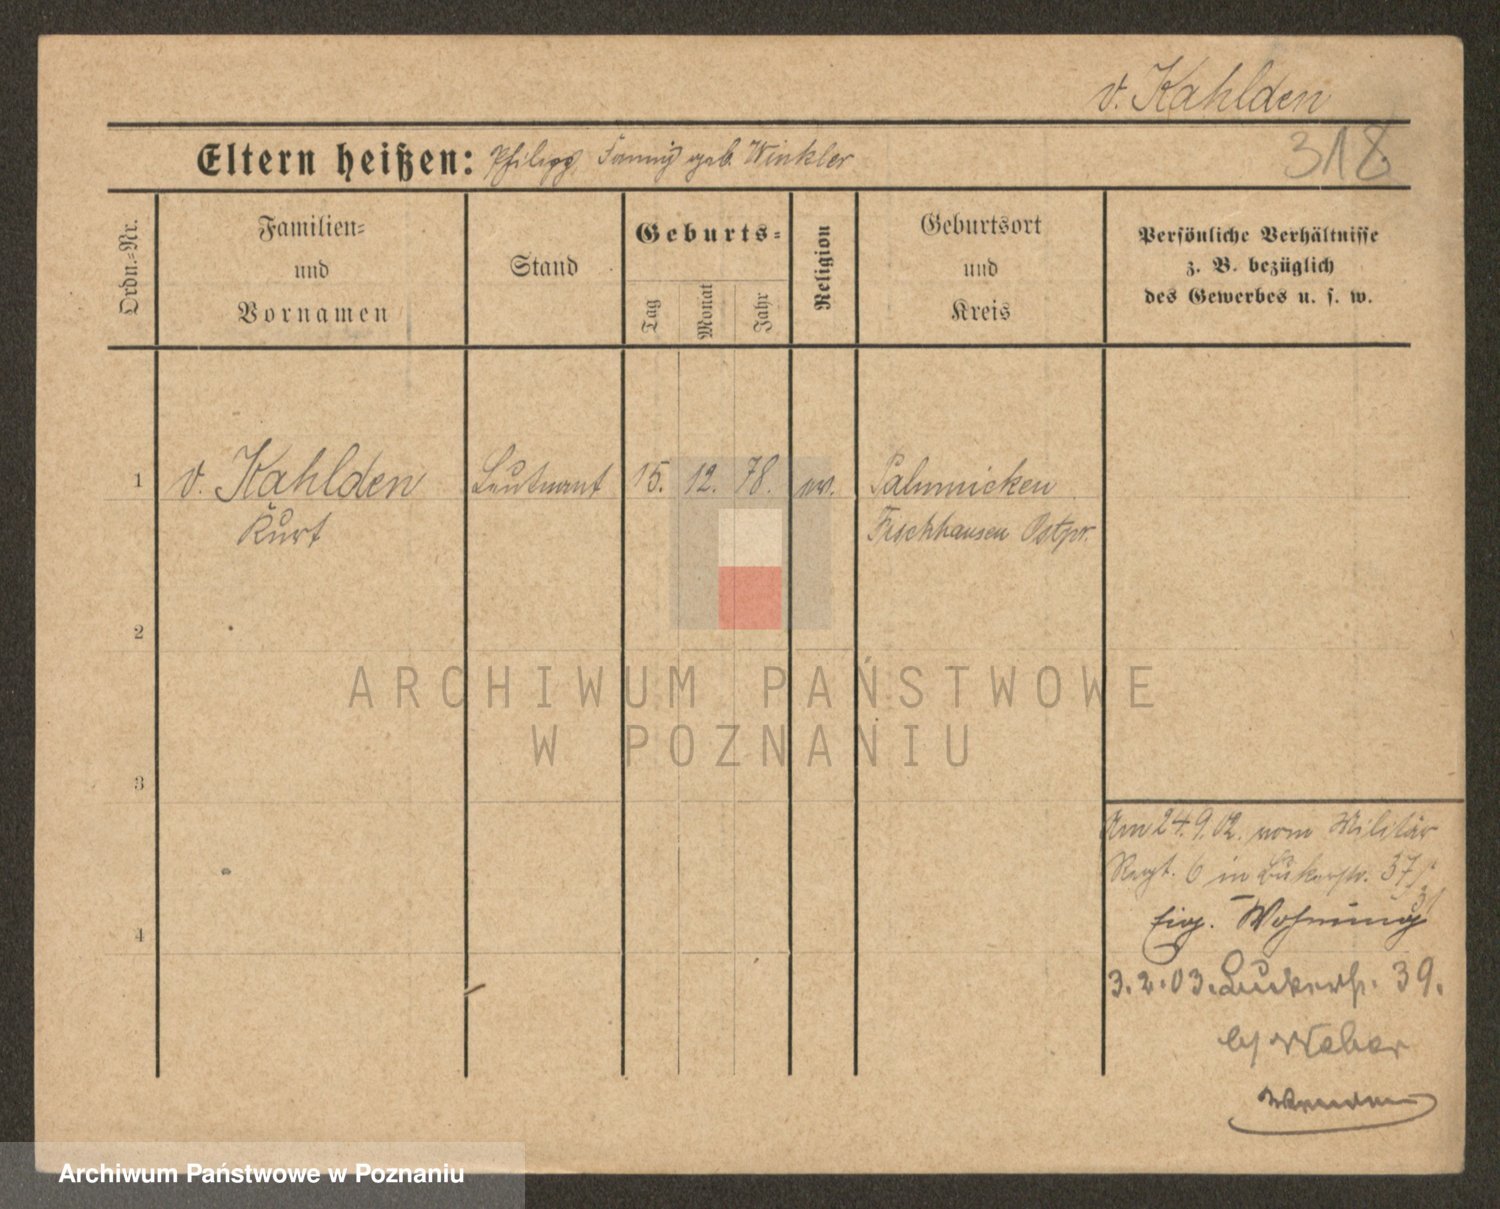 v. Kahlden
318.
Eltern heißen: Philipp, Fanny geb. Winkler
Ordn.-Nr.
Familien-
und
Vornamen
Stand
Geburts-
Tag
Monat
Jahr
Religion
Geburtsort
und
Kreis
Persönliche Verhältnisse
z. B. bezüglich
des Gewerbes u. s. w.
1 v. Kahlden Leutnant 15. 12. 78. ev. Palmnicken
Kurt Fischhausen Ostpr.
2
3
4
Am 24.9.02. vom Militär
Regt. 6 in 37
Eig. Wohnung
3.2.03. 39.
b/ Weber
Wenden
ARCHIWUM PAŃSTWOWE
W POZNANIU
Archiwum Państwowe w Poznaniu